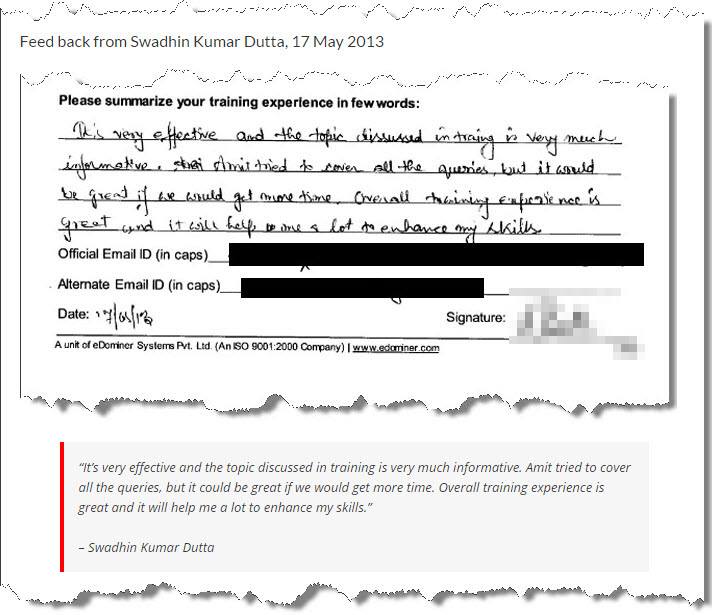 Feed back from Swadhin Kumar Dutta, 17 May 2013
Please summarize your training experience in few words:
It's very effective and the topic disussed in traing is very much
informative. Amit tried to cover all the queries, but it would
be great if we would get more time. Overall training experience is
great and it will help me a lot to enhance my skills
Official Email ID (in caps)
Alternate Email ID (in caps)
Date: 17/05/13
Signature:
A unit of eDominer Systems Pvt. Ltd. (An ISO 9001:2000 Company) | www.edominer.com
“It’s very effective and the topic discussed in training is very much informative. Amit tried to cover
all the queries, but it could be great if we would get more time. Overall training experience is
great and it will help me a lot to enhance my skills.”
– Swadhin Kumar Dutta